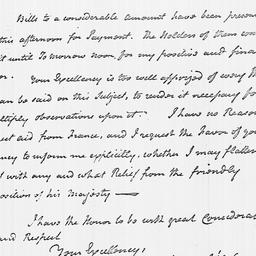 Bills to a considerable amount have been presen
this afternoon for Payment. The Holders of them con
it until Tomorrow noon for my positive and fina
r.
Your Excellency is too well apprized of every th
an be said on this Subject, to render it necessary fo
ultiply observations upon it. I have no Reason
ect aid from France, and I request the Favor of you
ncy to inform me explicitly, whether I may flatter
with any and what Relief from the friendly
position of his Majesty —
I have the Honor to be with great Considera
and Respect
Your Excellency's